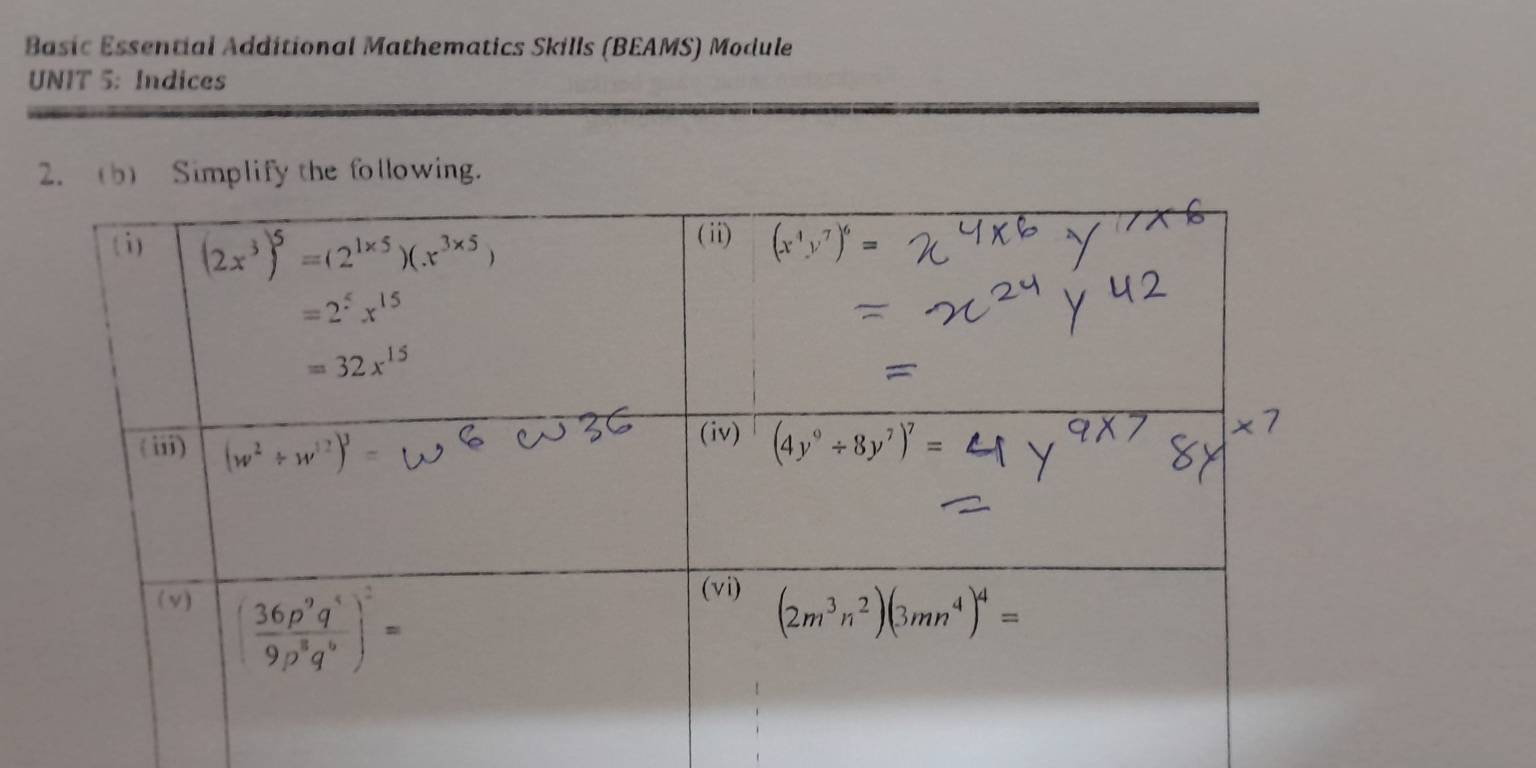 Basic Essential Additional Mathematics Skills (BEAMS) Module
UNIT 5: Indices
2. (b) Simplify the following.
(i) (2x³)⁵ = (2^(1×5))(x^(3×5))
= 2⁵ x¹⁵
= 32x¹⁵
(ii) (x⁴y⁷)⁶ = x^(4×6) y^(7×6)
= x²⁴ y⁴²
=
(iii) (w² ÷ w¹²)³ = w⁶ w³⁶
(iv) (4y⁹ ÷ 8y⁷)⁷ = 4y^(9×7) 8y^(×7)
=
(v) (36p⁹q⁵ / 9p⁸q⁶)² =
(vi) (2m³n²)(3mn⁴)⁴ =